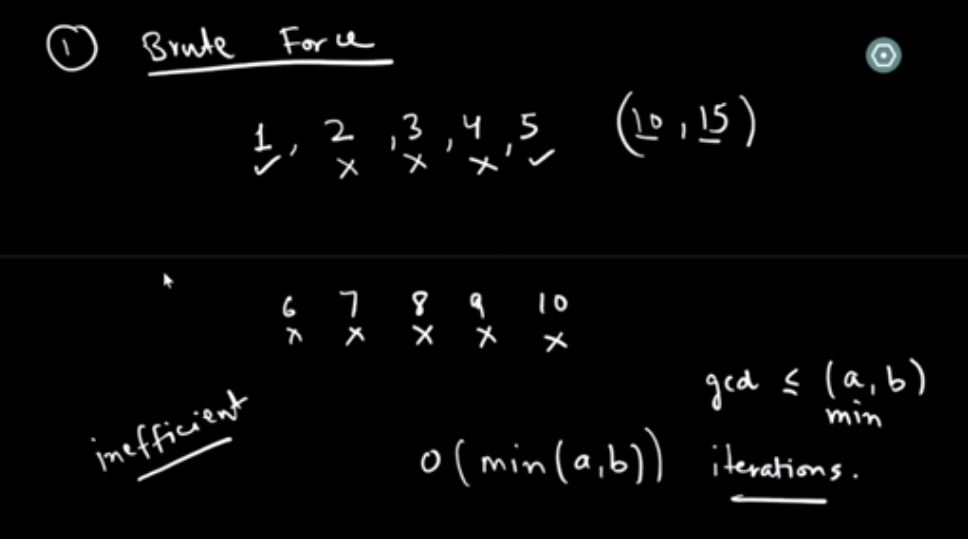 ① Brute Force
1, 2, 3, 4, 5 (10, 15)
✓ x x x ✓
6 7 8 9 10
x x x x x
gcd ≤ (a, b)
min
inefficient
O(min(a,b)) iterations.